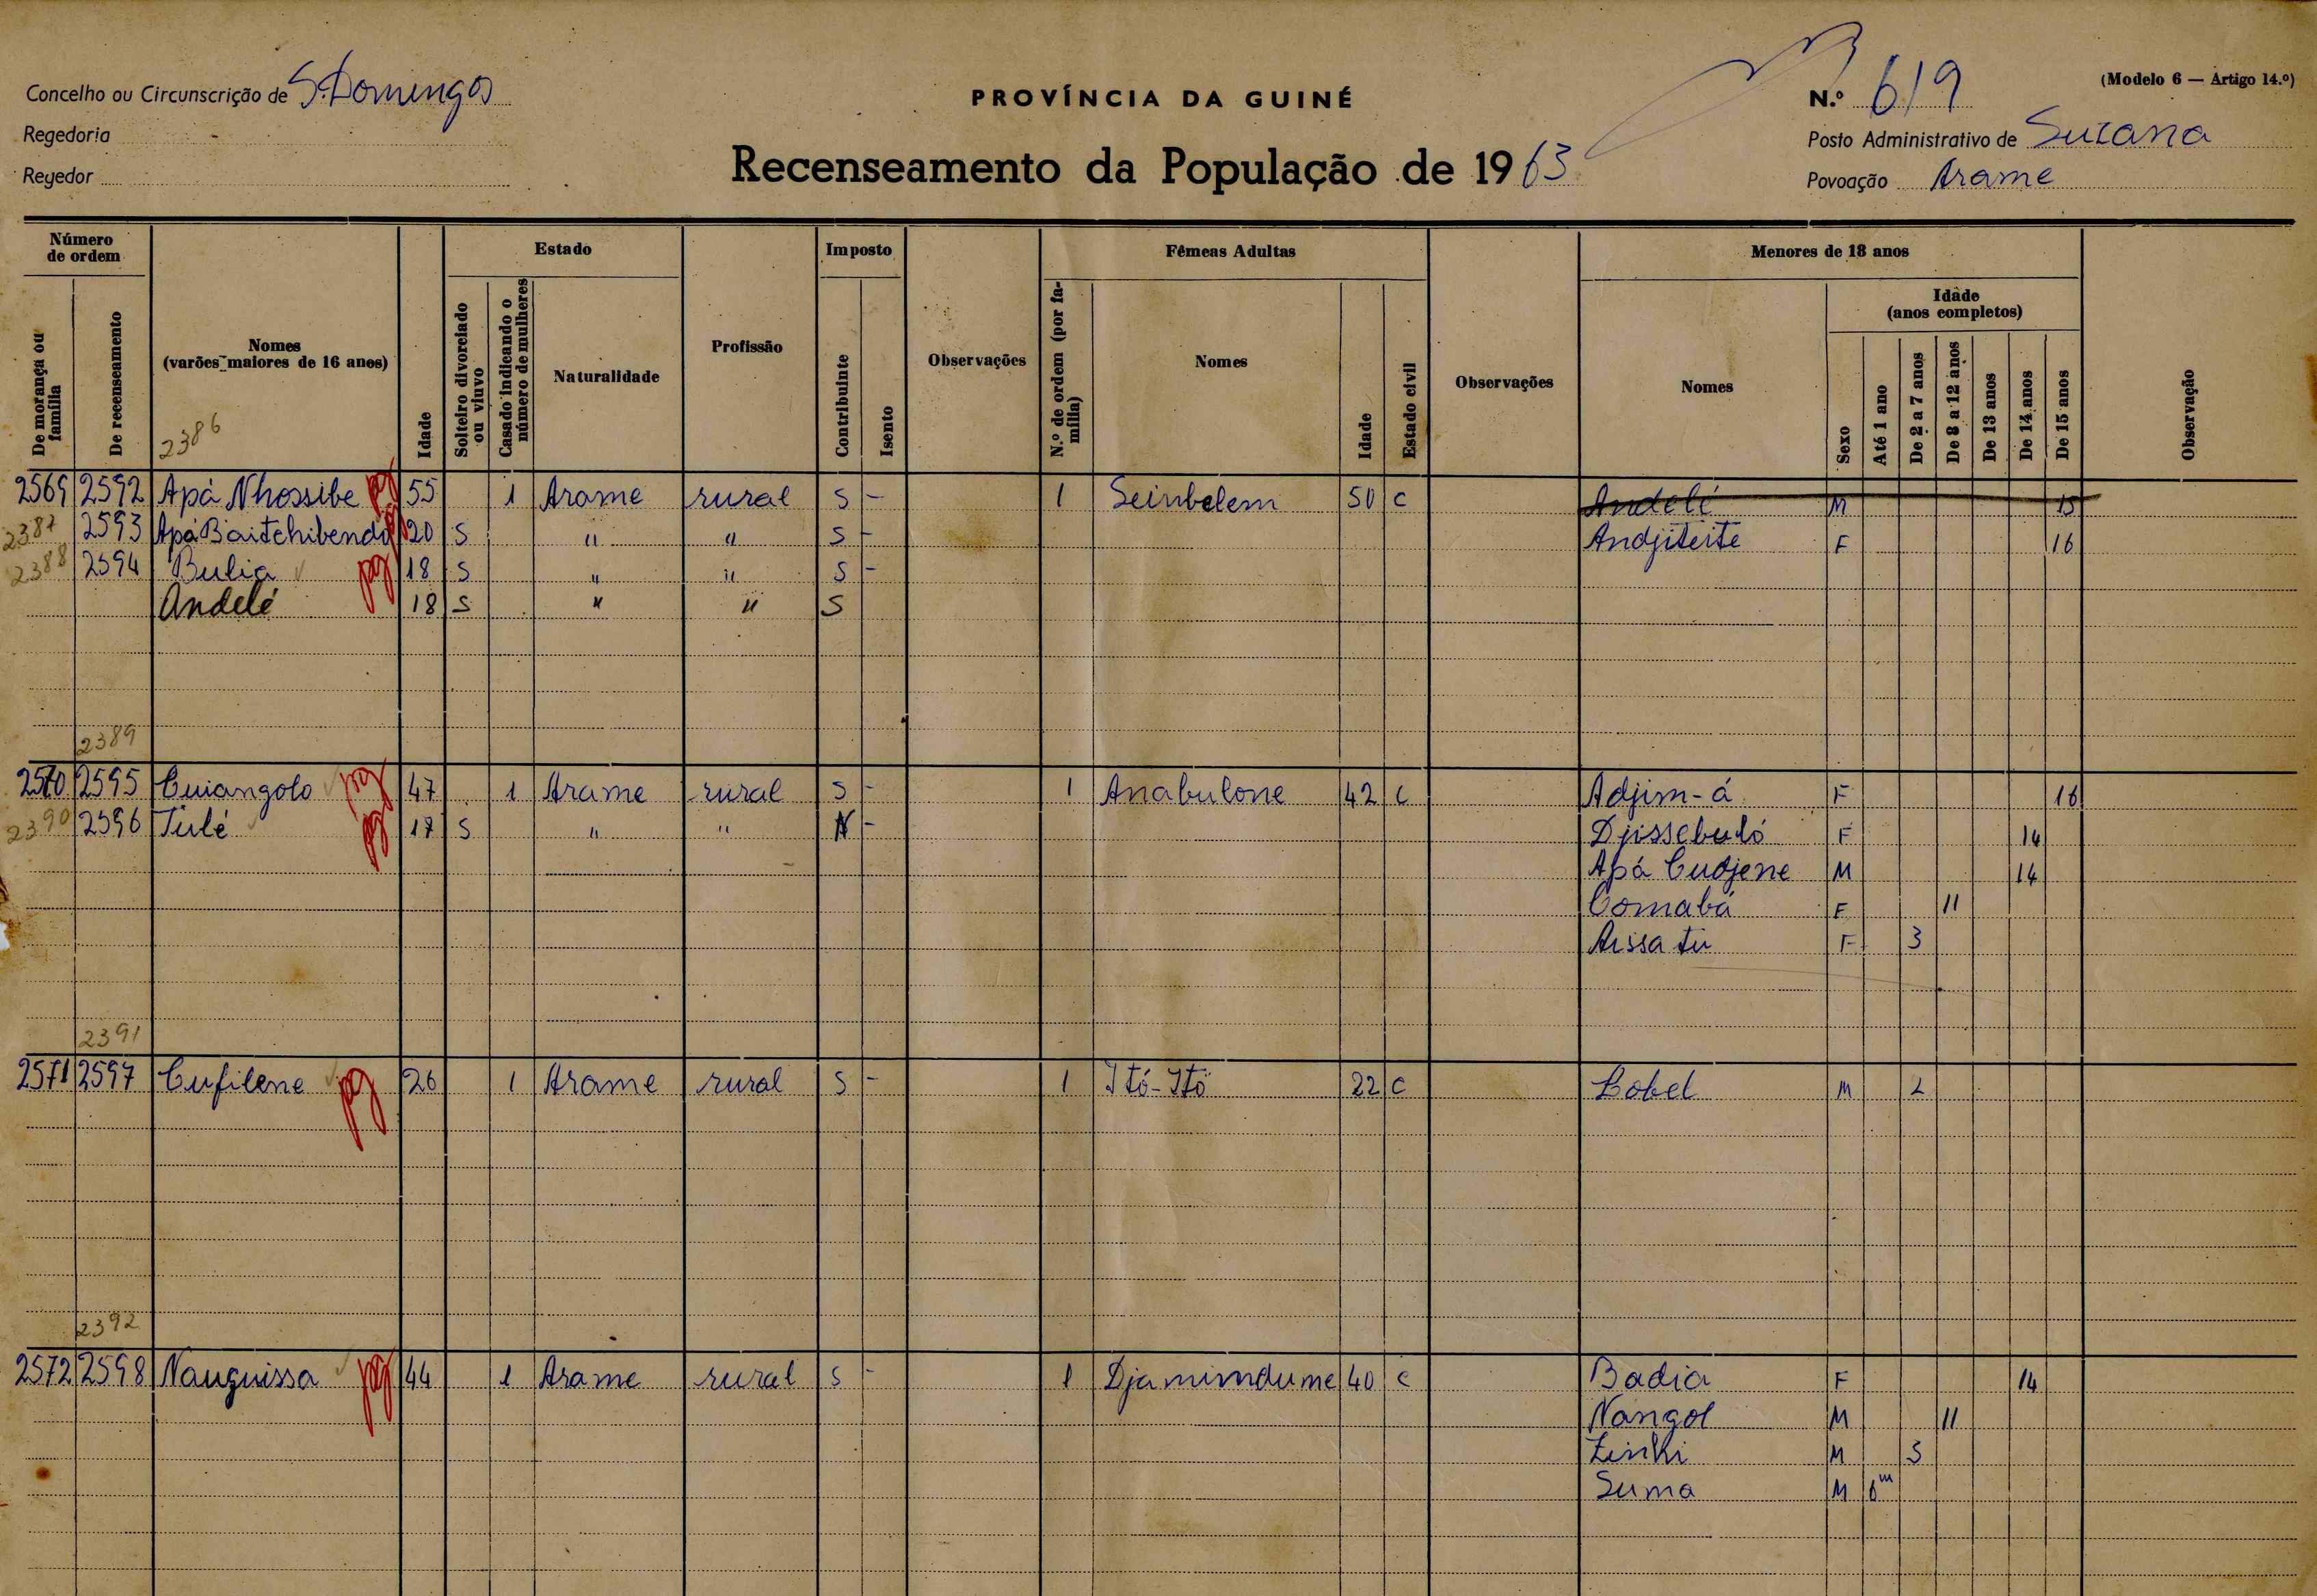 Concelho ou Circunscrição de S. Domingos
Regedoria
Regedor
PROVÍNCIA DA GUINÉ
Recenseamento da População de 1963
(Modelo 6 — Artigo 14.º)
N.º 619
Posto Administrativo de Suzana
Povoação Arame
Número de ordem
De morança ou família
De recenseamento
Nomes (varões maiores de 16 anos)
2386
Idade
Estado
Solteiro divorciado ou viuvo
Casado indicando o número de mulheres
Naturalidade
Profissão
Imposto
Contribuinte
Isento
Observações
Fêmeas Adultas
N.º de ordem (por família)
Nomes
Idade
Estado civil
Observações
Menores de 18 anos
Nomes
Sexo
Idade (anos completos)
Até 1 ano
De 2 a 7 anos
De 8 a 12 anos
De 13 anos
De 14 anos
De 15 anos
Observação
2569 2592 Apá Nhossibe pg 55 1 Arame rural S - 1 Seinbelem 50 c Andelé M 15
2387 2593 Apá Baitchibendo pg 20 S " " S - Andjiteite F 16
2388 2594 Bulia pg 18 S " " S -
Andelé 18 S " " S
2389
2570 2595 Cuiangolo pg 47 1 Arame rural S - 1 Anabulone 42 c Adjim-á F 16
2390 2596 Tulé pg 17 S " " N - Djissebuló F 14
Apá Cudjene M 14
Comabá F 11
Aissatu F 3
2391
2571 2597 Cufilene pg 26 1 Arame rural S - 1 Itó-Itó 22 c Lobel M 2
2392
2572 2598 Nauguissa pg 44 1 Arame rural S - 1 Djamimdume 40 c Badia F 14
Nangol M 11
Zinhi M 3
Suma M 6m